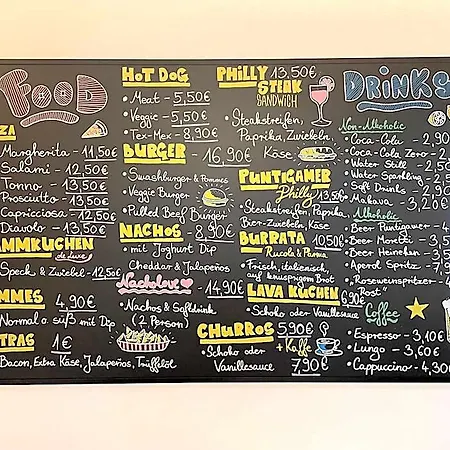 FOOD
ZA
Margherita - 11,50€
Salami - 12,50€
Tonno - 13,50€
Prosciutto - 13,50€
Capricciosa - 12,50€
Diavolo - 13,50€
AMMKUCHEN
de luxe
Speck & Zwiebel - 12,50€
MMES 4,90€
Normal o. süß mit Dip
TRAG 1€
Bacon, Extra Käse, Jalapeños, Trüffelöl
HOT DOG
• Meat - 5,50€
• Veggie - 5,50€
• Tex-Mex - 8,90€
BURGER - 16,90€
• Swashburger & Pommes
• Veggie Burger
• Pulled Beef Burger
NACHOS - 8,90€
• mit Joghurt Dip
Cheddar & Jalapeños
Nacholove - 14,90€
• Nachos & Softdrink
(2 Person)
CHURROS 5,90€
• Schoko oder + Kaffe
Vanillesauce 7,90€
PHILLY 13,50€
STEAK
SANDWICH
• Steakstreifen,
Paprika, Zwiebeln,
Käse
PUNTIGAMER
Philly 13,50€
• Steakstreifen, Paprika
Bier-Zwiebeln, Käse
BURRATA 10,50€
Rucola & Parma
• Frisch, italienisch,
auf knusprigem Brot
LAVA KUCHEN 6,90€
• Schoko oder Vanillesauce
DRINKS
Non-Alkoholic
• Coca-Cola - 2,90
• Coca-Cola Zero - 2,
• Water Still - 2,
• Water Sparkling - 2,
• Soft Drinks 2,90
• Makava 3,20€
Alkoholic
• Beer Puntigamer - 4
• Beer Moretti - 3,5
• Beer Heineken - 3,
• Aperol Spritz - 7,9
• Roseweinspritzer -
"Rost"
Coffee
• Espresso - 3,10€
• Lungo - 3,60€
• Cappuccino - 4,30€